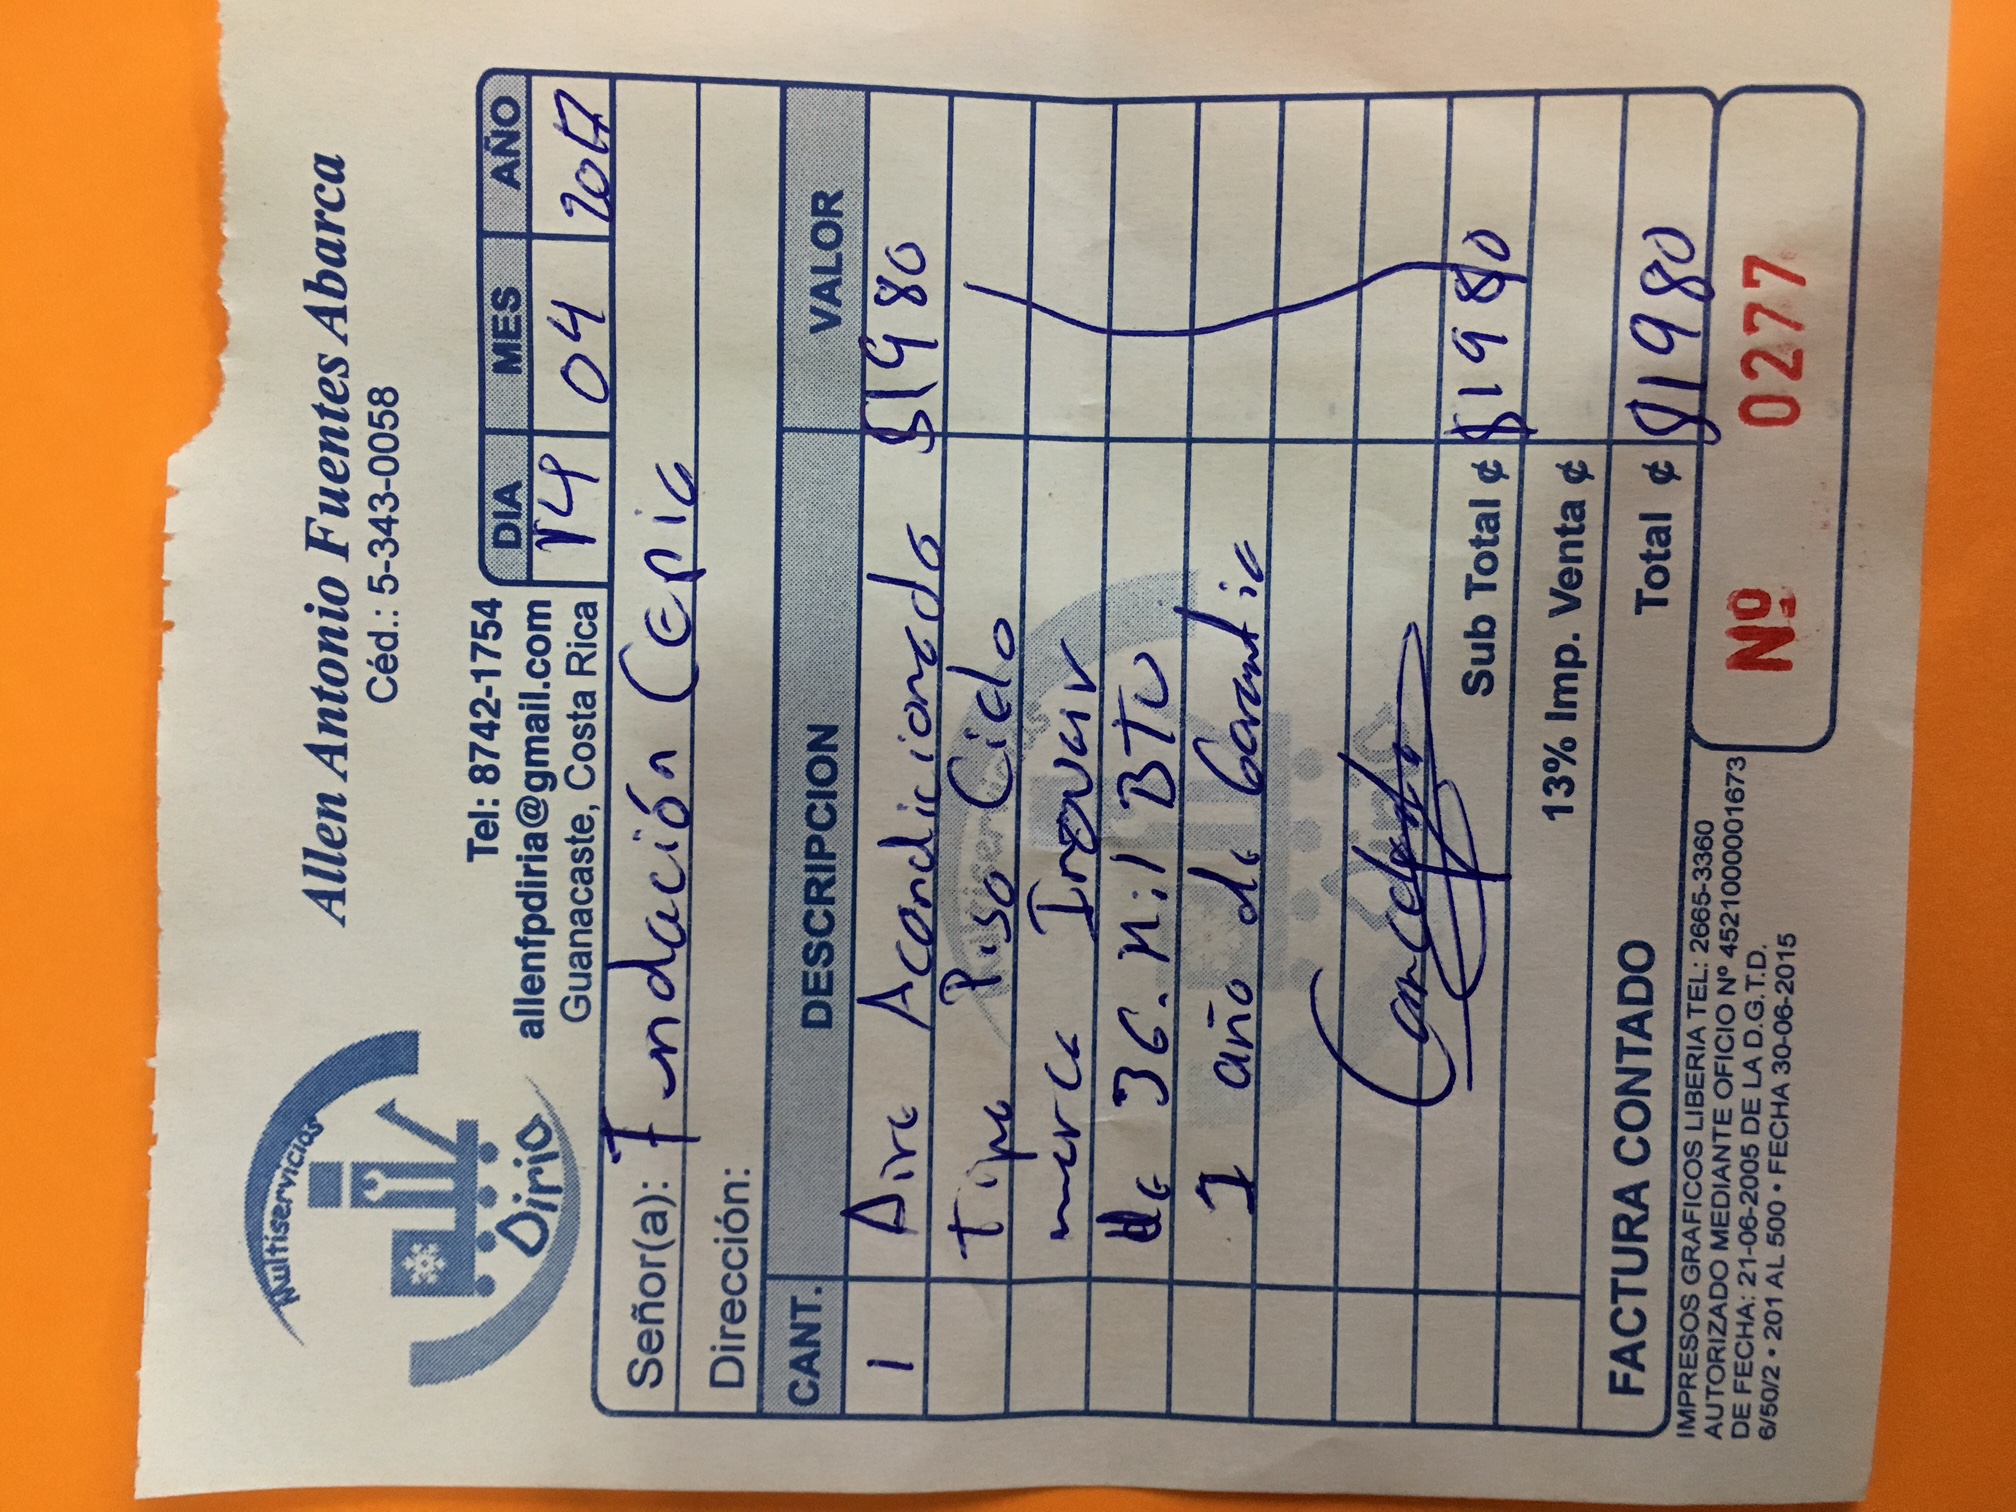 Multiservicios
Diria
Allen Antonio Fuentes Abarca
Céd.: 5-343-0058
Tel: 8742-1754
allenfpdiria@gmail.com
Guanacaste, Costa Rica
DIA MES AÑO
14 04 2017
Señor(a): Fundación Cepia
Dirección:
CANT. DESCRIPCION VALOR
1 Aire Acondicionado $1980
tipo Piso Cielo
marca Inovair
de 36.Mil BTU
1 año de Garantia
Cancelado
Sub Total ¢ $1980
13% Imp. Venta ¢
FACTURA CONTADO Total ¢ $1980
IMPRESOS GRAFICOS LIBERIA TEL: 2665-3360
AUTORIZADO MEDIANTE OFICIO Nº 4521000001673
DE FECHA: 21-06-2005 DE LA D.G.T.D.
6/50/2 • 201 AL 500 • FECHA 30-06-2015
Nº 0277